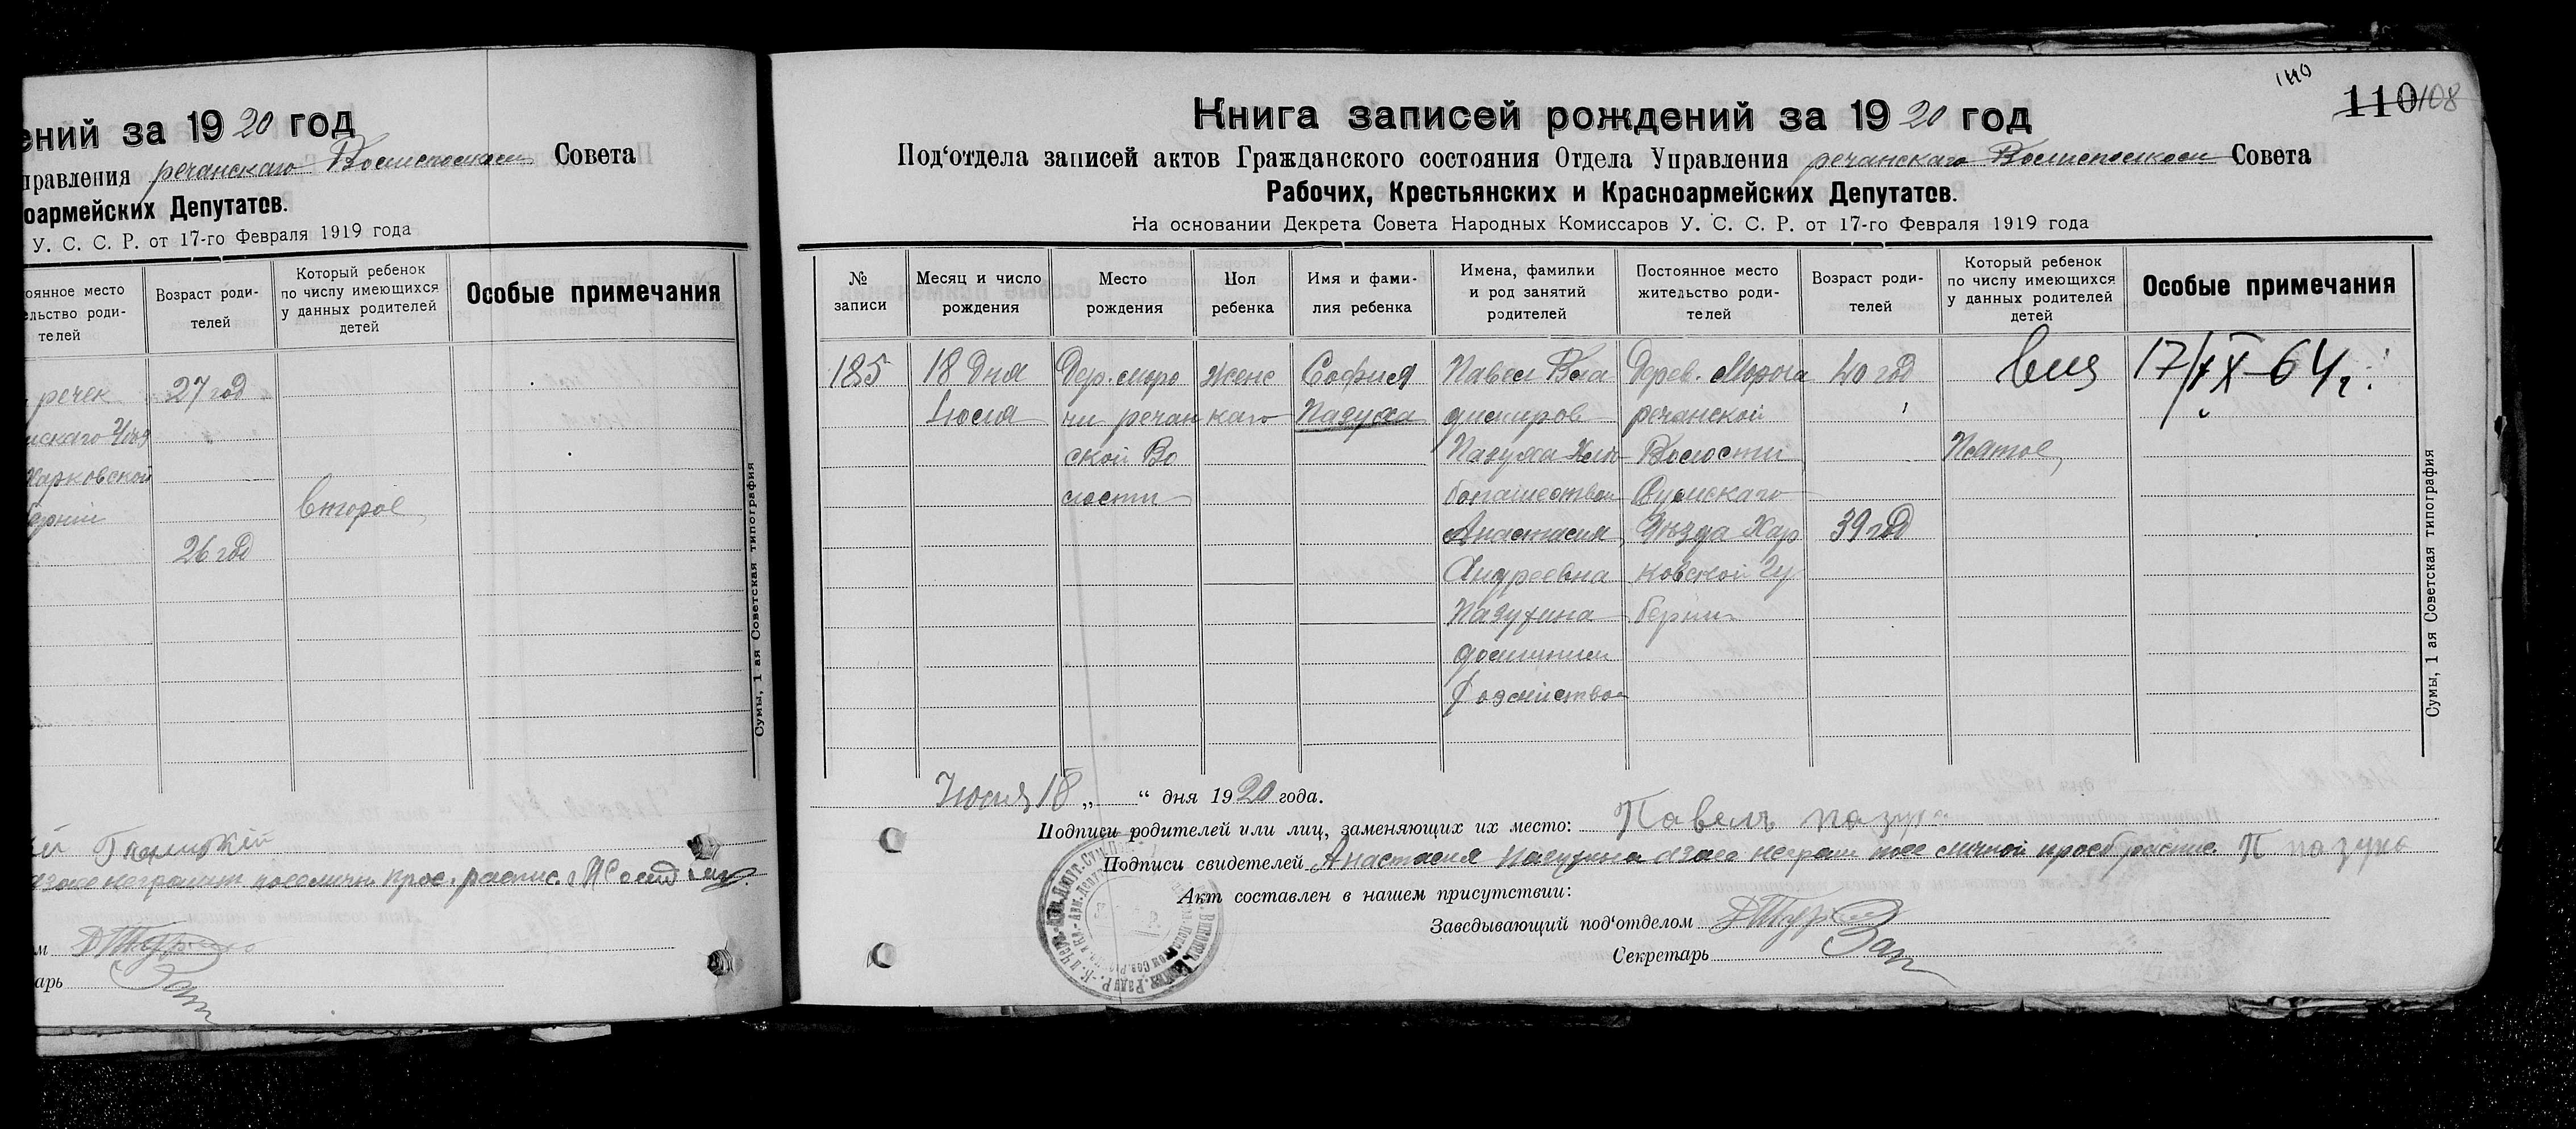 ений за 1920 год
правления речанскаго Совета
оармейских Депутатов.
У. С. С. Р. от 17-го Февраля 1919 года
оянное место
ельство роди-
телей
Возраст роди-
телей
Который ребенок
по числу имеющихся
у данных родителей
детей
Особые примечания
речек 27 год
Харковской
второе
26 год
Сумы, 1 ая Советская типография
110 108
Книга записей рождений за 1920 год
Под'отдела записей актов Гражданского состояния Отдела Управления речанскаго Совета
Рабочих, Крестьянских и Красноармейских Депутатов.
На основании Декрета Совета Народных Комиссаров У. С. С. Р. от 17-го Февраля 1919 года
№
записи
Месяц и число
рождения
Место
рождения
Пол
ребенка
Имя и фами-
лия ребенка
Имена, фамилии
и род занятий
родителей
Постоянное место
жительство роди-
телей
Возраст роди-
телей
Который ребенок
по числу имеющихся
у данных родителей
детей
Особые примечания
185
18 дня
Июля
Дер. Моро
чи речан
ской Во
лости
женс
каго
София
Пазуха
Павел Вла
димиров
Пазуха Хле
бопашество
Анастасия
Андреевна
Пазухина
домашнем
хозяйством
Дерев. Мороча
речанской
Волости
Сумскаго
Уезда Хар
ковской Гу
бернии
40 год
39 год
Пятое
17/IX-64 г.
Сумы, 1 ая Советская типография
Июля 18 „ “ дня 1920 года.
Подписи родителей или лиц, заменяющих их место: Павелъ пазуха
Подписи свидетелей Анастасия Пазухина
Акт составлен в нашем присутствии:
Заведывающий под'отделом
Секретарь